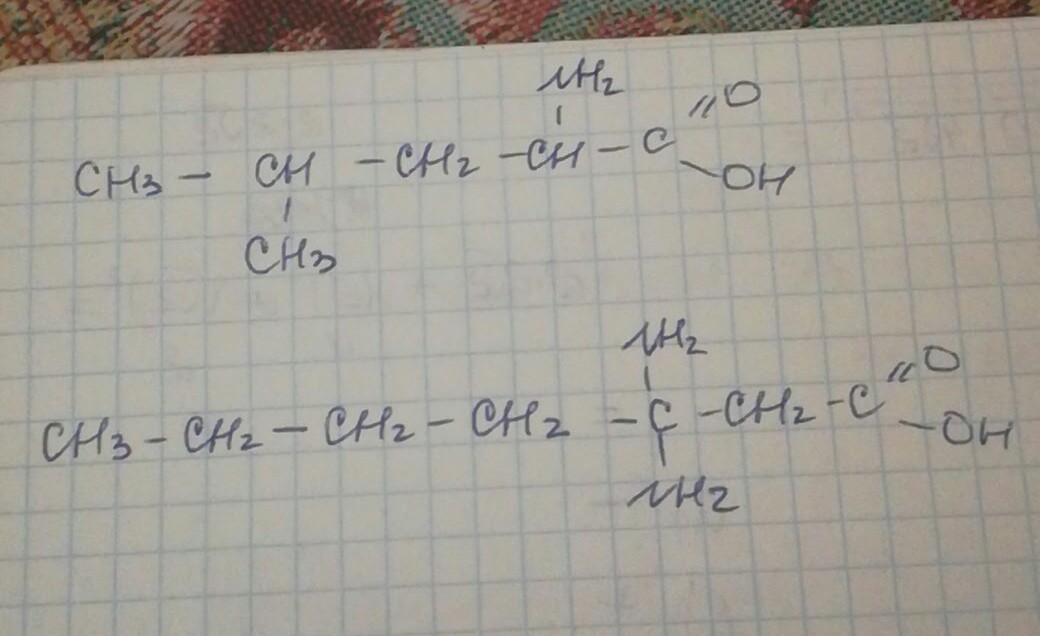 NH2
CH3 - CH - CH2 - CH - C =O
- OH
CH3
NH2
CH3 - CH2 - CH2 - CH2 - C - CH2 - C =O
- OH
NH2